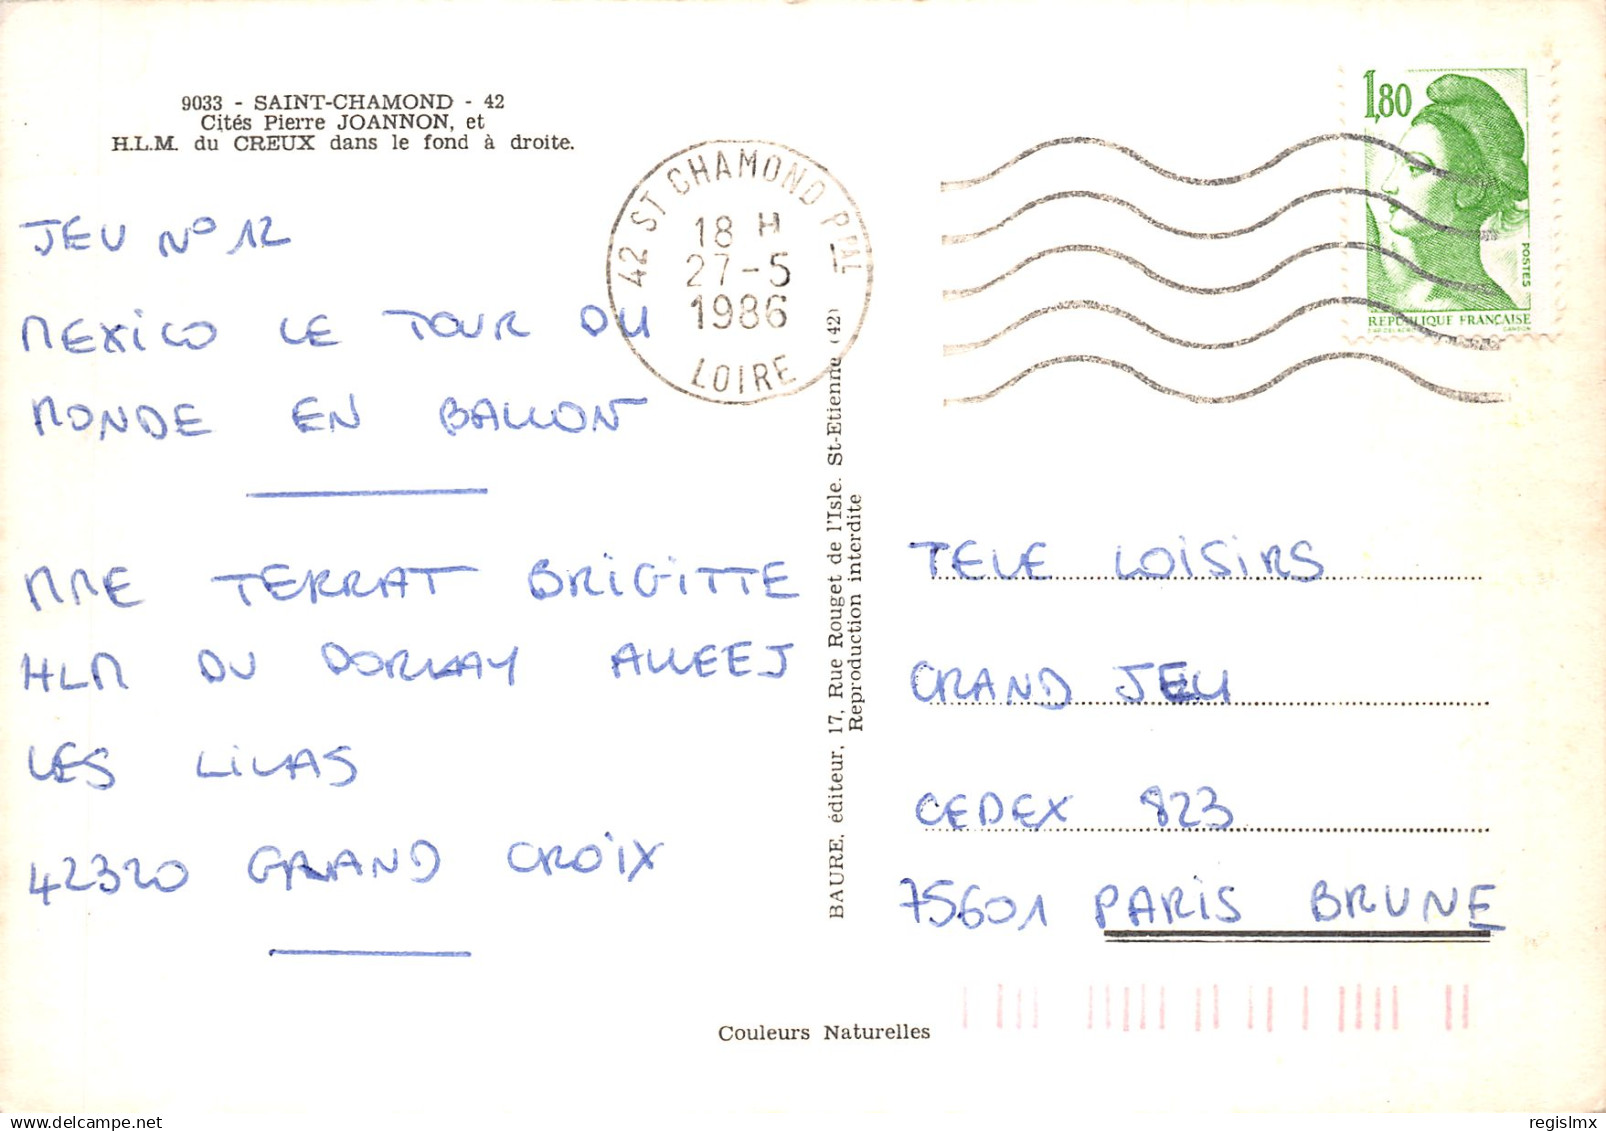 9033 - SAINT-CHAMOND - 42
Cités Pierre JOANNON, et
H.L.M. du CREUX dans le fond à droite.
JEU N° 12
MEXICO LE TOUR DU
MONDE EN BALLON
MME TERRAT BRIGITTE
HLM DU DORLAY ALLEE J
LES LILAS
42320 GRAND CROIX
42 ST CHAMOND PPAL
18 H
27-5
1986
LOIRE
BAURE, éditeur, 17, Rue Rouget de l'Isle. St-Etienne (42)
Reproduction interdite
1,80
POSTES
REPUBLIQUE FRANÇAISE
TELE LOISIRS
GRAND JEU
CEDEX 823
75601 PARIS BRUNE
Couleurs Naturelles
delcampe.net
regislmx